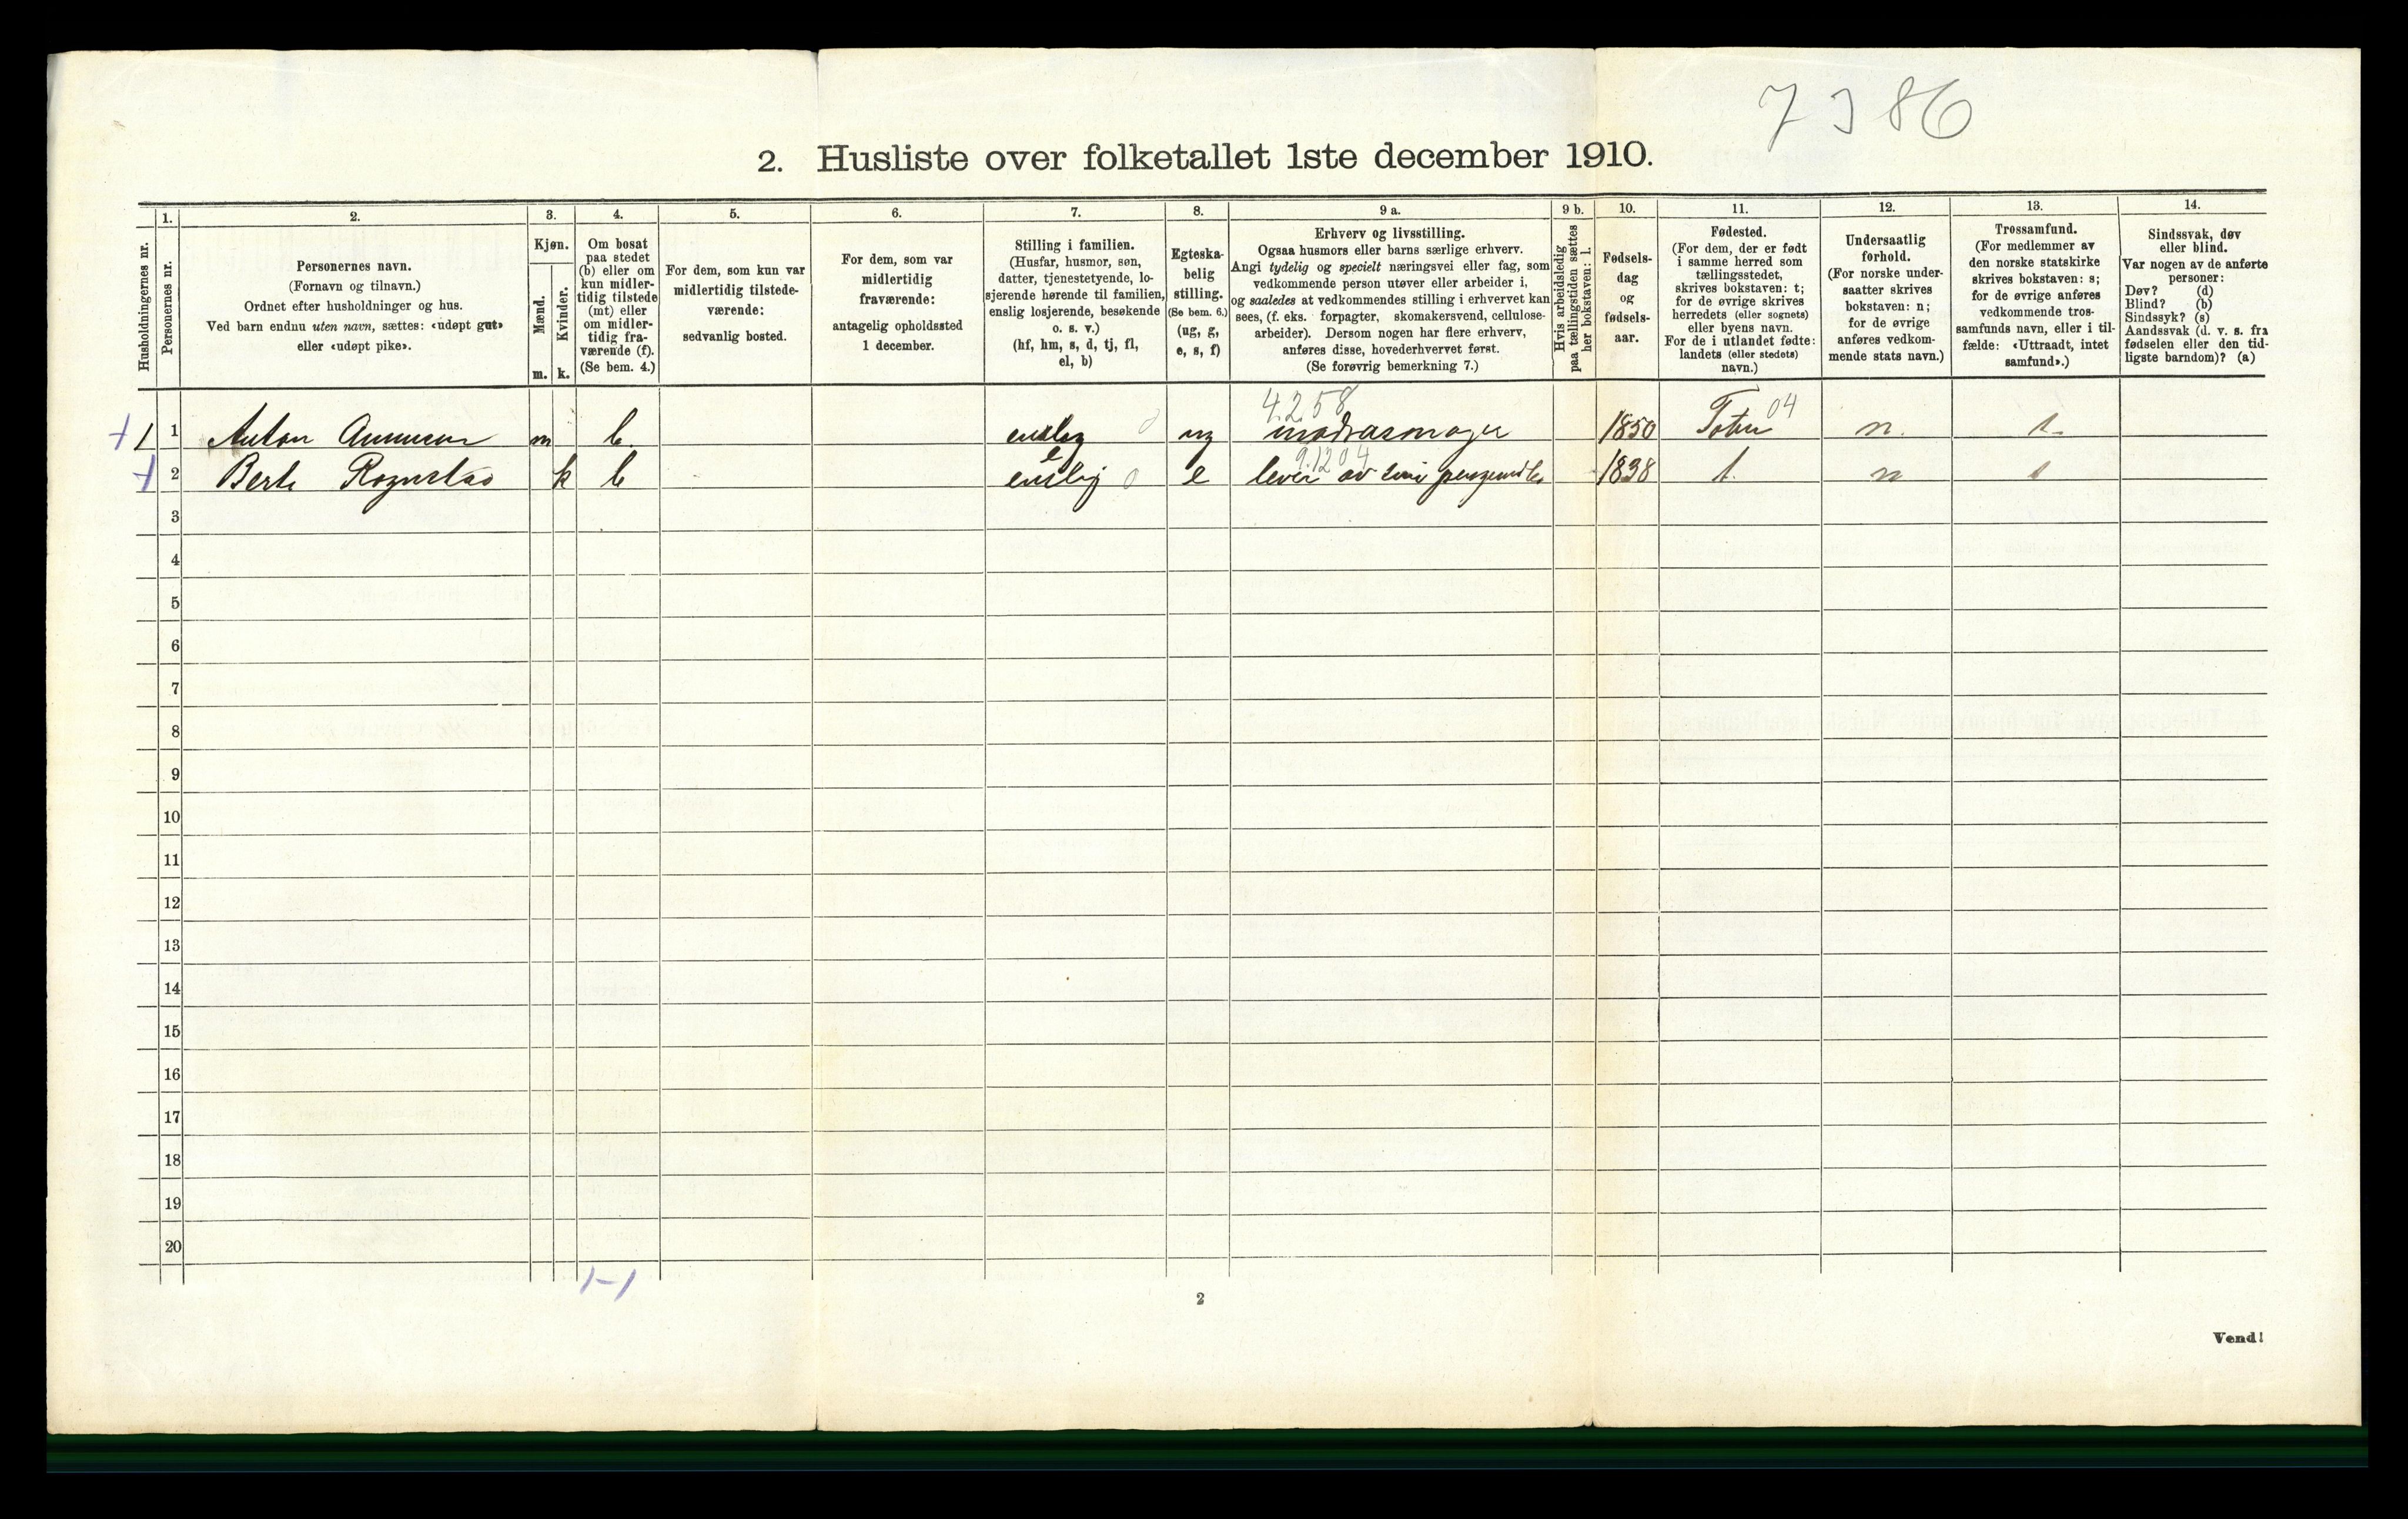 7386
2. Husliste over folketallet 1ste december 1910.
Husholdningernes nr.
1.
Personernes nr.
2.
Personernes navn.
(Fornavn og tilnavn.)
Ordnet efter husholdninger og hus.
Ved barn endnu uten navn, sættes: «udøpt gut»
eller «udøpt pike».
3.
Kjøn.
Mænd.
Kvinder.
m. k.
4.
Om bosat
paa stedet
(b) eller om
kun midler-
tidig tilstede
(mt) eller
om midler-
tidig fra-
værende (f).
(Se bem. 4.)
5.
For dem, som kun var
midlertidig tilstede-
værende:
sedvanlig bosted.
6.
For dem, som var
midlertidig
fraværende:
antagelig opholdssted
1 december.
7.
Stilling i familien.
(Husfar, husmor, søn,
datter, tjenestetyende, lo-
sjerende hørende til familien,
enslig losjerende, besøkende
o. s. v.)
(hf, hm, s, d, tj, fl,
el, b)
8.
Egteska-
belig
stilling.
(Se bem. 6.)
(ug, g,
e, s, f)
9 a.
Erhverv og livsstilling.
Ogsaa husmors eller barns særlige erhverv.
Angi tydelig og specielt næringsvei eller fag, som
vedkommende person utøver eller arbeider i,
og saaledes at vedkommendes stilling i erhvervet kan
sees, (f. eks. forpagter, skomakersvend, cellulose-
arbeider). Dersom nogen har flere erhverv,
anføres disse, hovederhvervet først.
(Se forøvrig bemerkning 7.)
9 b.
Hvis arbeidsledig
paa tællingstiden sættes
her bokstaven: l.
10.
Fødsels-
dag
og
fødsels-
aar.
11.
Fødested.
(For dem, der er født
i samme herred som
tællingsstedet,
skrives bokstaven: t;
for de øvrige skrives
herredets (eller sognets)
eller byens navn.
For de i utlandet fødte:
landets (eller stedets)
navn.)
12.
Undersaatlig
forhold.
(For norske under-
saatter skrives
bokstaven: n;
for de øvrige
anføres vedkom-
mende stats navn.)
13.
Trossamfund.
(For medlemmer av
den norske statskirke
skrives bokstaven: s;
for de øvrige anføres
vedkommende tros-
samfunds navn, eller i til-
fælde: «Uttraadt, intet
samfund».)
14.
Sindssvak, døv
eller blind.
Var nogen av de anførte
personer:
Døv? (d)
Blind? (b)
Sindssyk? (s)
Aandssvak (d. v. s. fra
fødselen eller den tid-
ligste barndom)? (a)
4258 04
1 1 Anton m b. enslig ug 1850 Toten n. s.
9.1204
2 k b enslig e lever av sine 1838 t. n s
3
4
5
6
7
8
9
10
11
12
13
14
15
16
17
18
19
20
1-1
2
Vend!